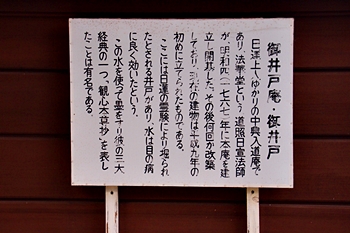 御井戸庵・御井戸
日蓮上人ゆかりの中興入道庵で
あり、法華堂という。道照日宣法師
が、明和四(一七六七)年に本庵を建
立し開基した。その後何回か改築
しており、現在の建物は平成九年の
初めに立てられたものである。
ここには日蓮の霊験により掘られ
たとされる井戸があり、水は目の病
に良く効いたという。
この水を使って墨をすり彼の三大
経典の一つ、「観心本尊抄」を表し
たことは有名である。